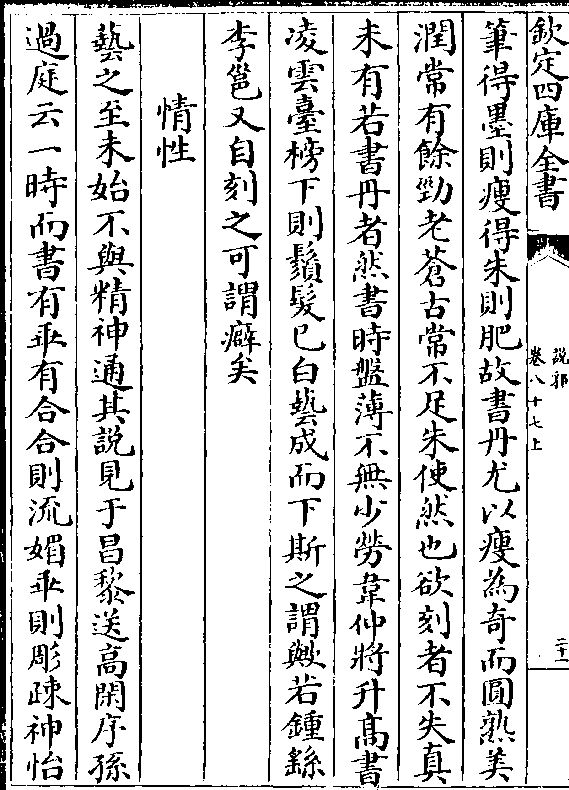 欽定四庫全書
説郛
卷八十七上
二十一
筆得墨則瘦得朱則肥故書丹尤以瘦為奇而圓熟美
潤常有餘勁老蒼古常不足朱使然也欲刻者不失真
未有若書丹者然書時盤薄不無少勞韋仲將升高書
凌雲臺榜下則鬚髮已白藝成而下斯之謂歟若鍾繇
李邕又自刻之可謂癖矣
情性
藝之至未始不與精神通其説見于昌黎送高閑序孫
過庭云一時而書有乖有合合則流媚乖則彫疎神怡